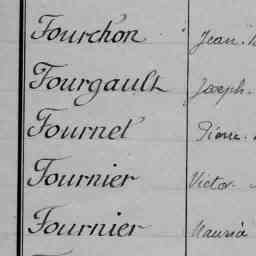 Fourchon Jean
Fourgault Joseph
Fournel Pierre
Fournier Victor
Fournier